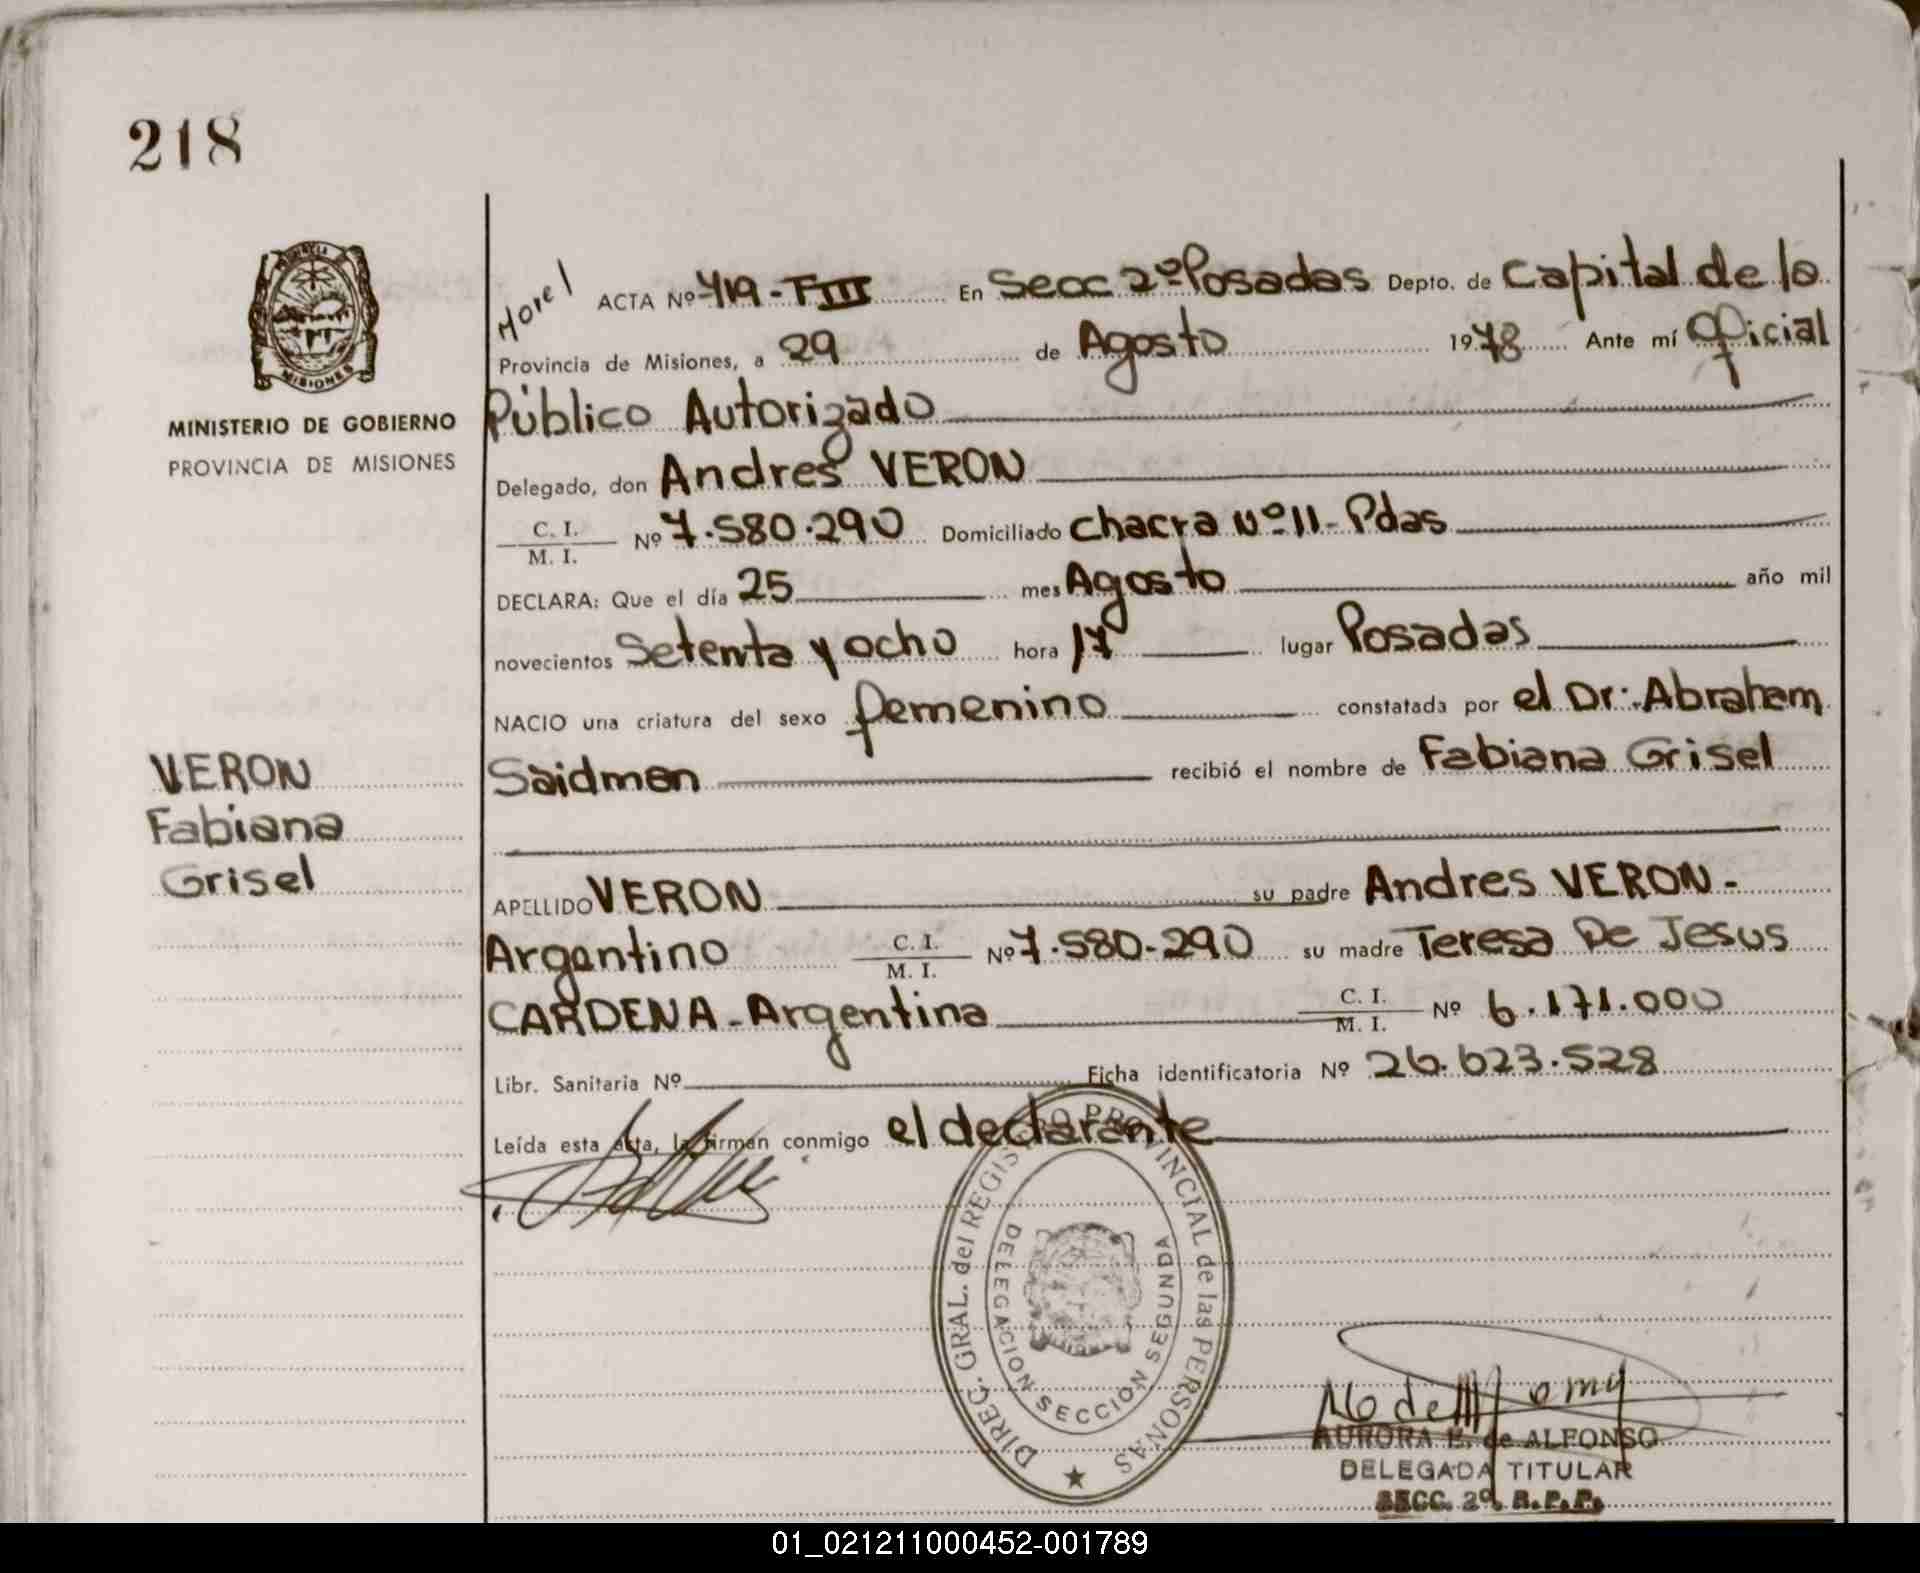 218
MINISTERIO DE GOBIERNO
PROVINCIA DE MISIONES
VERON
Fabiana
Grisel
ACTA Nº 719-TIII En Secc 2º Posadas Depto. de Capital de la
Provincia de Misiones, a 29 de Agosto 1978 Ante mí Oficial
Público Autorizado
Delegado, don Andres VERON
C. I.
M. I. Nº 7.580.290 Domiciliado Chacra Nº 11- Pdas
DECLARA: Que el día 25 mes Agosto año mil
novecientos Setenta y ocho hora 17 lugar Posadas
NACIO una criatura del sexo femenino constatada por el Dr: Abraham
Saidman recibió el nombre de Fabiana Grisel
APELLIDO VERON su padre Andres VERON-
Argentino C. I.
M. I. Nº 7.580-290 su madre Teresa De Jesus
CARDENA - Argentina C. I.
M. I. Nº 6.171.000
Libr. Sanitaria Nº Ficha identificatoria Nº 26.623.528
Leída esta acta, la firman conmigo el declarante
DIREC. GRAL. del REGISTRO PROVINCIAL de las PERSONAS
DELEGACION SECCIÓN SEGUNDA
AURORA E. de ALFONSO
DELEGADA TITULAR
SECC. 2º R.P.P.
01_021211000452-001789